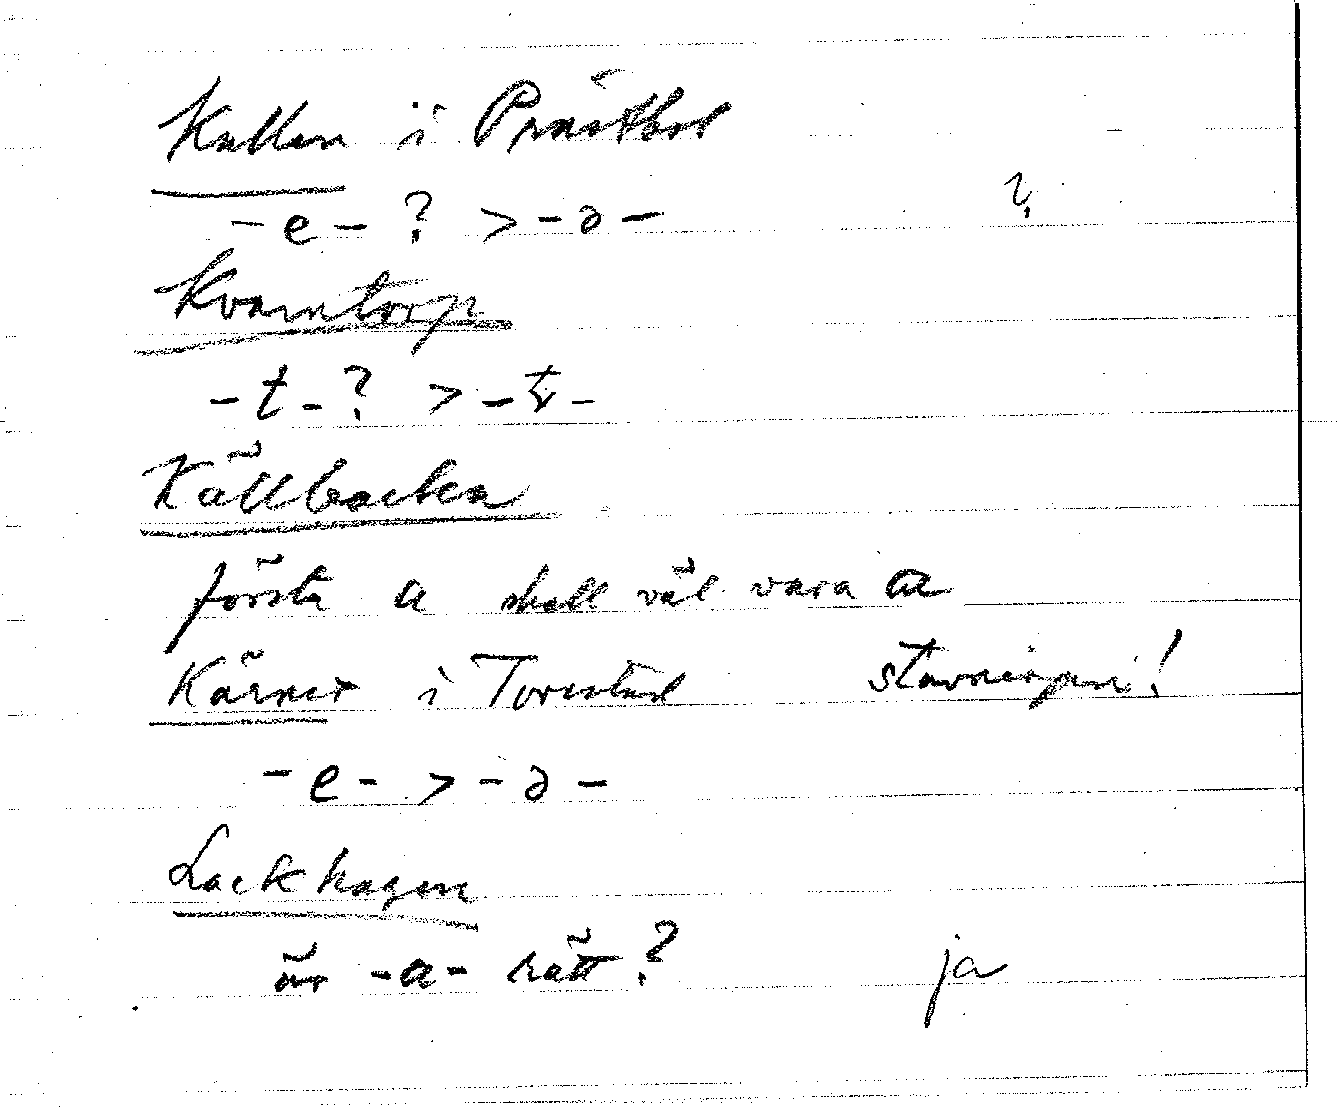 Kullen i Prästbol
-e-? > -ə- ?
Kvarntorp
-t-? > -ṭ-
Källbacken
första a skall väl vara a
Kärret i Torestad stavningen!
-e- > -ə-
Lackhagen
är -a- rätt? ja